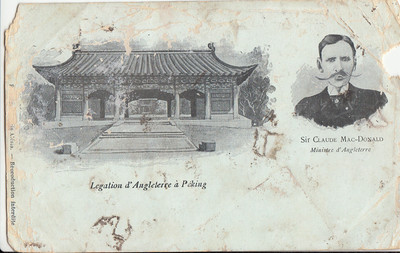 Légation d'Angleterre à Péking
SIR CLAUDE MAC-DONALD
Ministre d'Angleterre
Reproduction interdite